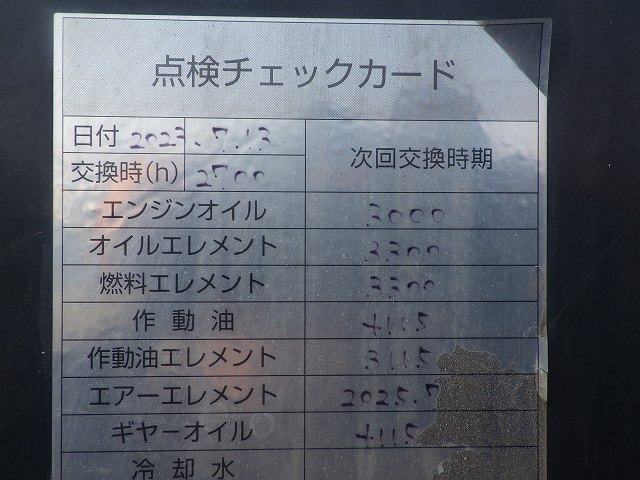 点検チェックカード
日付 2023.7.13
交換時(h) 2700 次回交換時期
エンジンオイル 3000
オイルエレメント 3300
燃料エレメント 3300
作動油 4115
作動油エレメント 3115
エアーエレメント 2025.7
ギヤーオイル 4115
冷却水